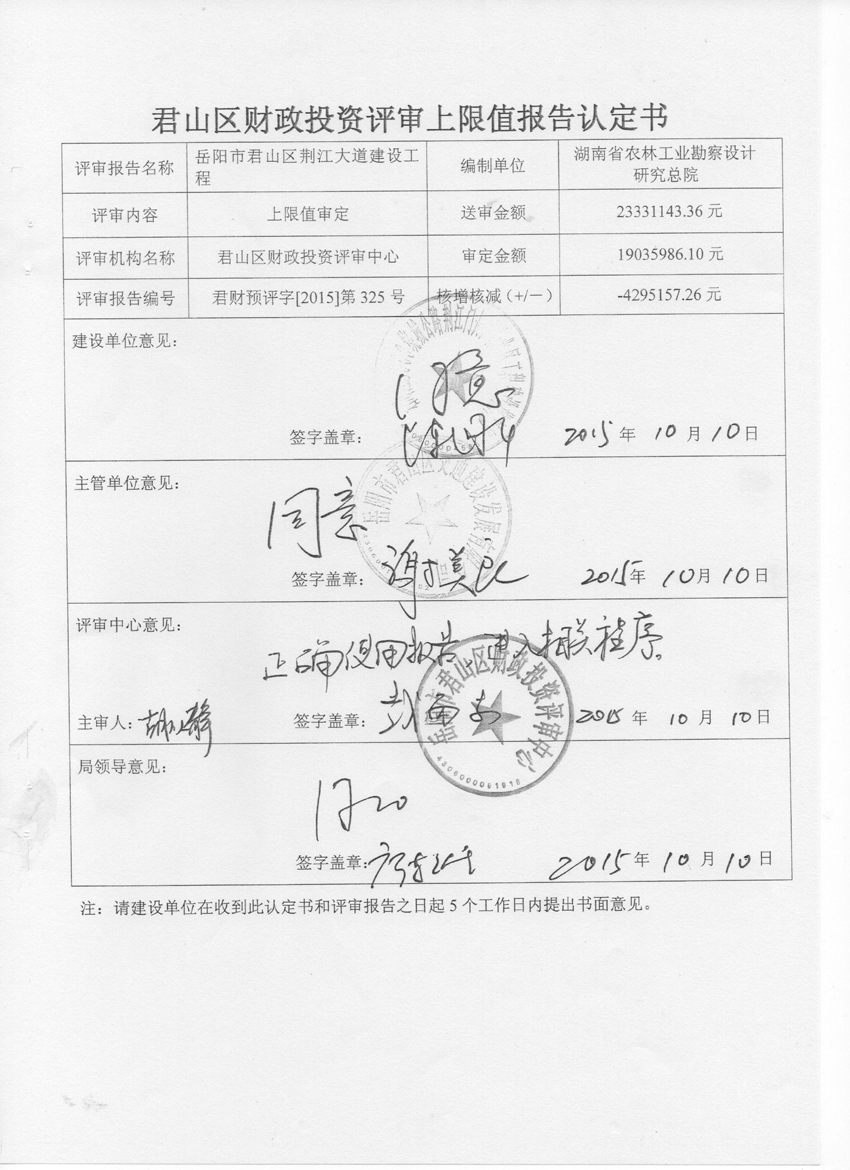 君山区财政投资评审上限值报告认定书
评审报告名称 岳阳市君山区荆江大道建设工程 编制单位 湖南省农林工业勘察设计研究总院
评审内容 上限值审定 送审金额 23331143.36 元
评审机构名称 君山区财政投资评审中心 审定金额 19035986.10 元
评审报告编号 君财预评字[2015]第 325 号 核增核减（+/－） -4295157.26 元
建设单位意见：
同意
签字盖章： 2015 年 10 月 10 日
主管单位意见：
同意
岳阳市君山区
建设发展有限
签字盖章： 谢模民 2015 年 10 月 10 日
评审中心意见：
正确使用报告，进入相关程序。
岳阳市君山区财政投资评审中心
主审人： 签字盖章： 2015 年 10 月 10 日
4306000061918
局领导意见：
签字盖章： 2015 年 10 月 10 日
注：请建设单位在收到此认定书和评审报告之日起 5 个工作日内提出书面意见。